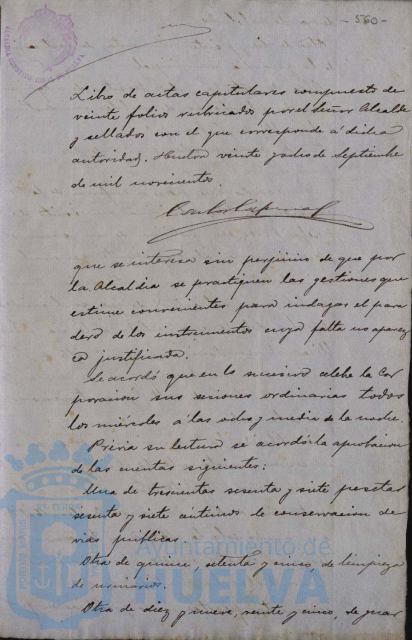 - 560 -
Libro de actas capitulares compuesto de
veinte folios rubricados por el Señor Alcalde
y sellados con el que corresponde á dicha
autoridad. Huelva veinte y dos de Septiembre
de mil novecientos.
que se interesa sin perjuicio de que por
la Alcaldia se practiquen las gestiones que
estime convenientes para indagar el para
dero de los instrumentos cuya falta no aparez
ca justificada.
Se acordó que en lo sucesivo celebre la Cor
poracion sus sesiones ordinarias todos
los miércoles á las ocho y media de la noche.
Previa su lectura se acordó la aprobacion
de las cuentas siguientes:
Una de trescientas sesenta y siete pesetas
sesenta y siete céntimos de conservacion de
vias publicas.
Otra de quince, setenta y cinco, de limpieza
de urinarios.
Otra de diez y nueve, veinte y cinco, de guar
Ayuntamiento de
HUELVA